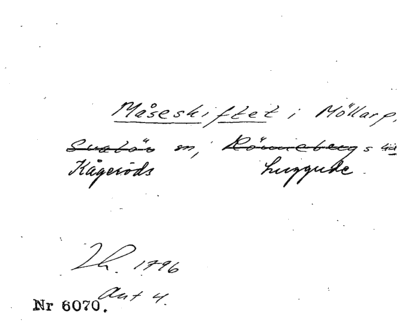 Måseskiftet i Möllarp,
Svalöv sn, Rönnebergs hd
Kågeröds Luggude.
Lh. 1796
Akt 4.
Nr 6070.